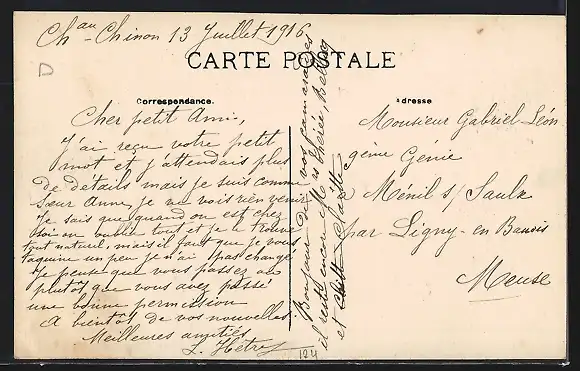 Chau-Chinon 13 Juillet 1916
D
CARTE POSTALE
Correspondance.
Adresse
Cher petit Ami,
J'ai reçu votre petit
mot et j'attendais plus
De détails mais je suis comme
Sœur Anne, je ne vois rien venir
Je sais que quand on est chez
soi on oublie tout et je le trouve
tout naturel, mais il faut que je vous
taquine un peu je n'ai pas changé
Je pense que vous passez ou
plutôt que vous avez passé
une bonne permission
A bientôt de vos nouvelles.
Meilleures amitiés
L. Hetre
Bonjour De vos camarades
il reste encore
et
Monsieur Gabriel-Léon
9ème Génie
Ménil s/ Saulx
par Ligny-en Barrois
Meuse
124